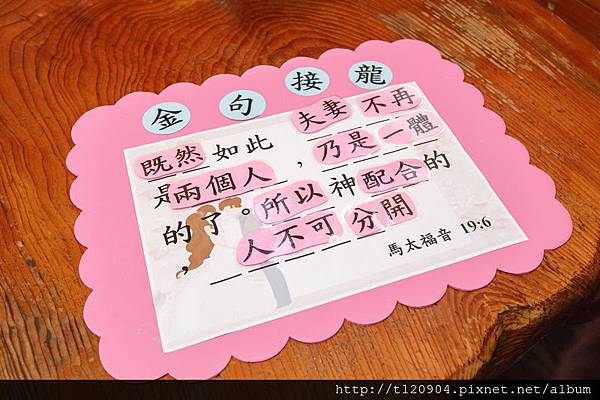 金句接龍
既然如此 夫妻不再
是兩個人，乃是一體
的了。所以神配合的
，人不可分開
馬太福音 19:6
http://t120904.pixnet.net/album